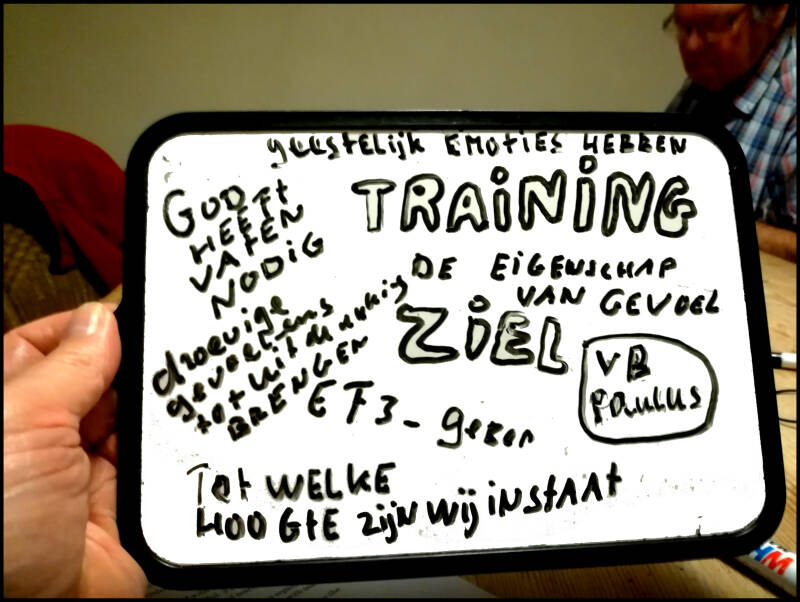 geestelijk EMOTiES HEBBEN
TRAiNiNG
GOD
HEEFt
VATEN
NODiG
DE EiGENSCHAP
VAN GEVOEL
ZiEL
droevige
gevoelens
tot uit
BRENGEN
VB
PAULUS
EF3 - geven
Tot WELKE
HOOGtE zijN wij iNstAAt